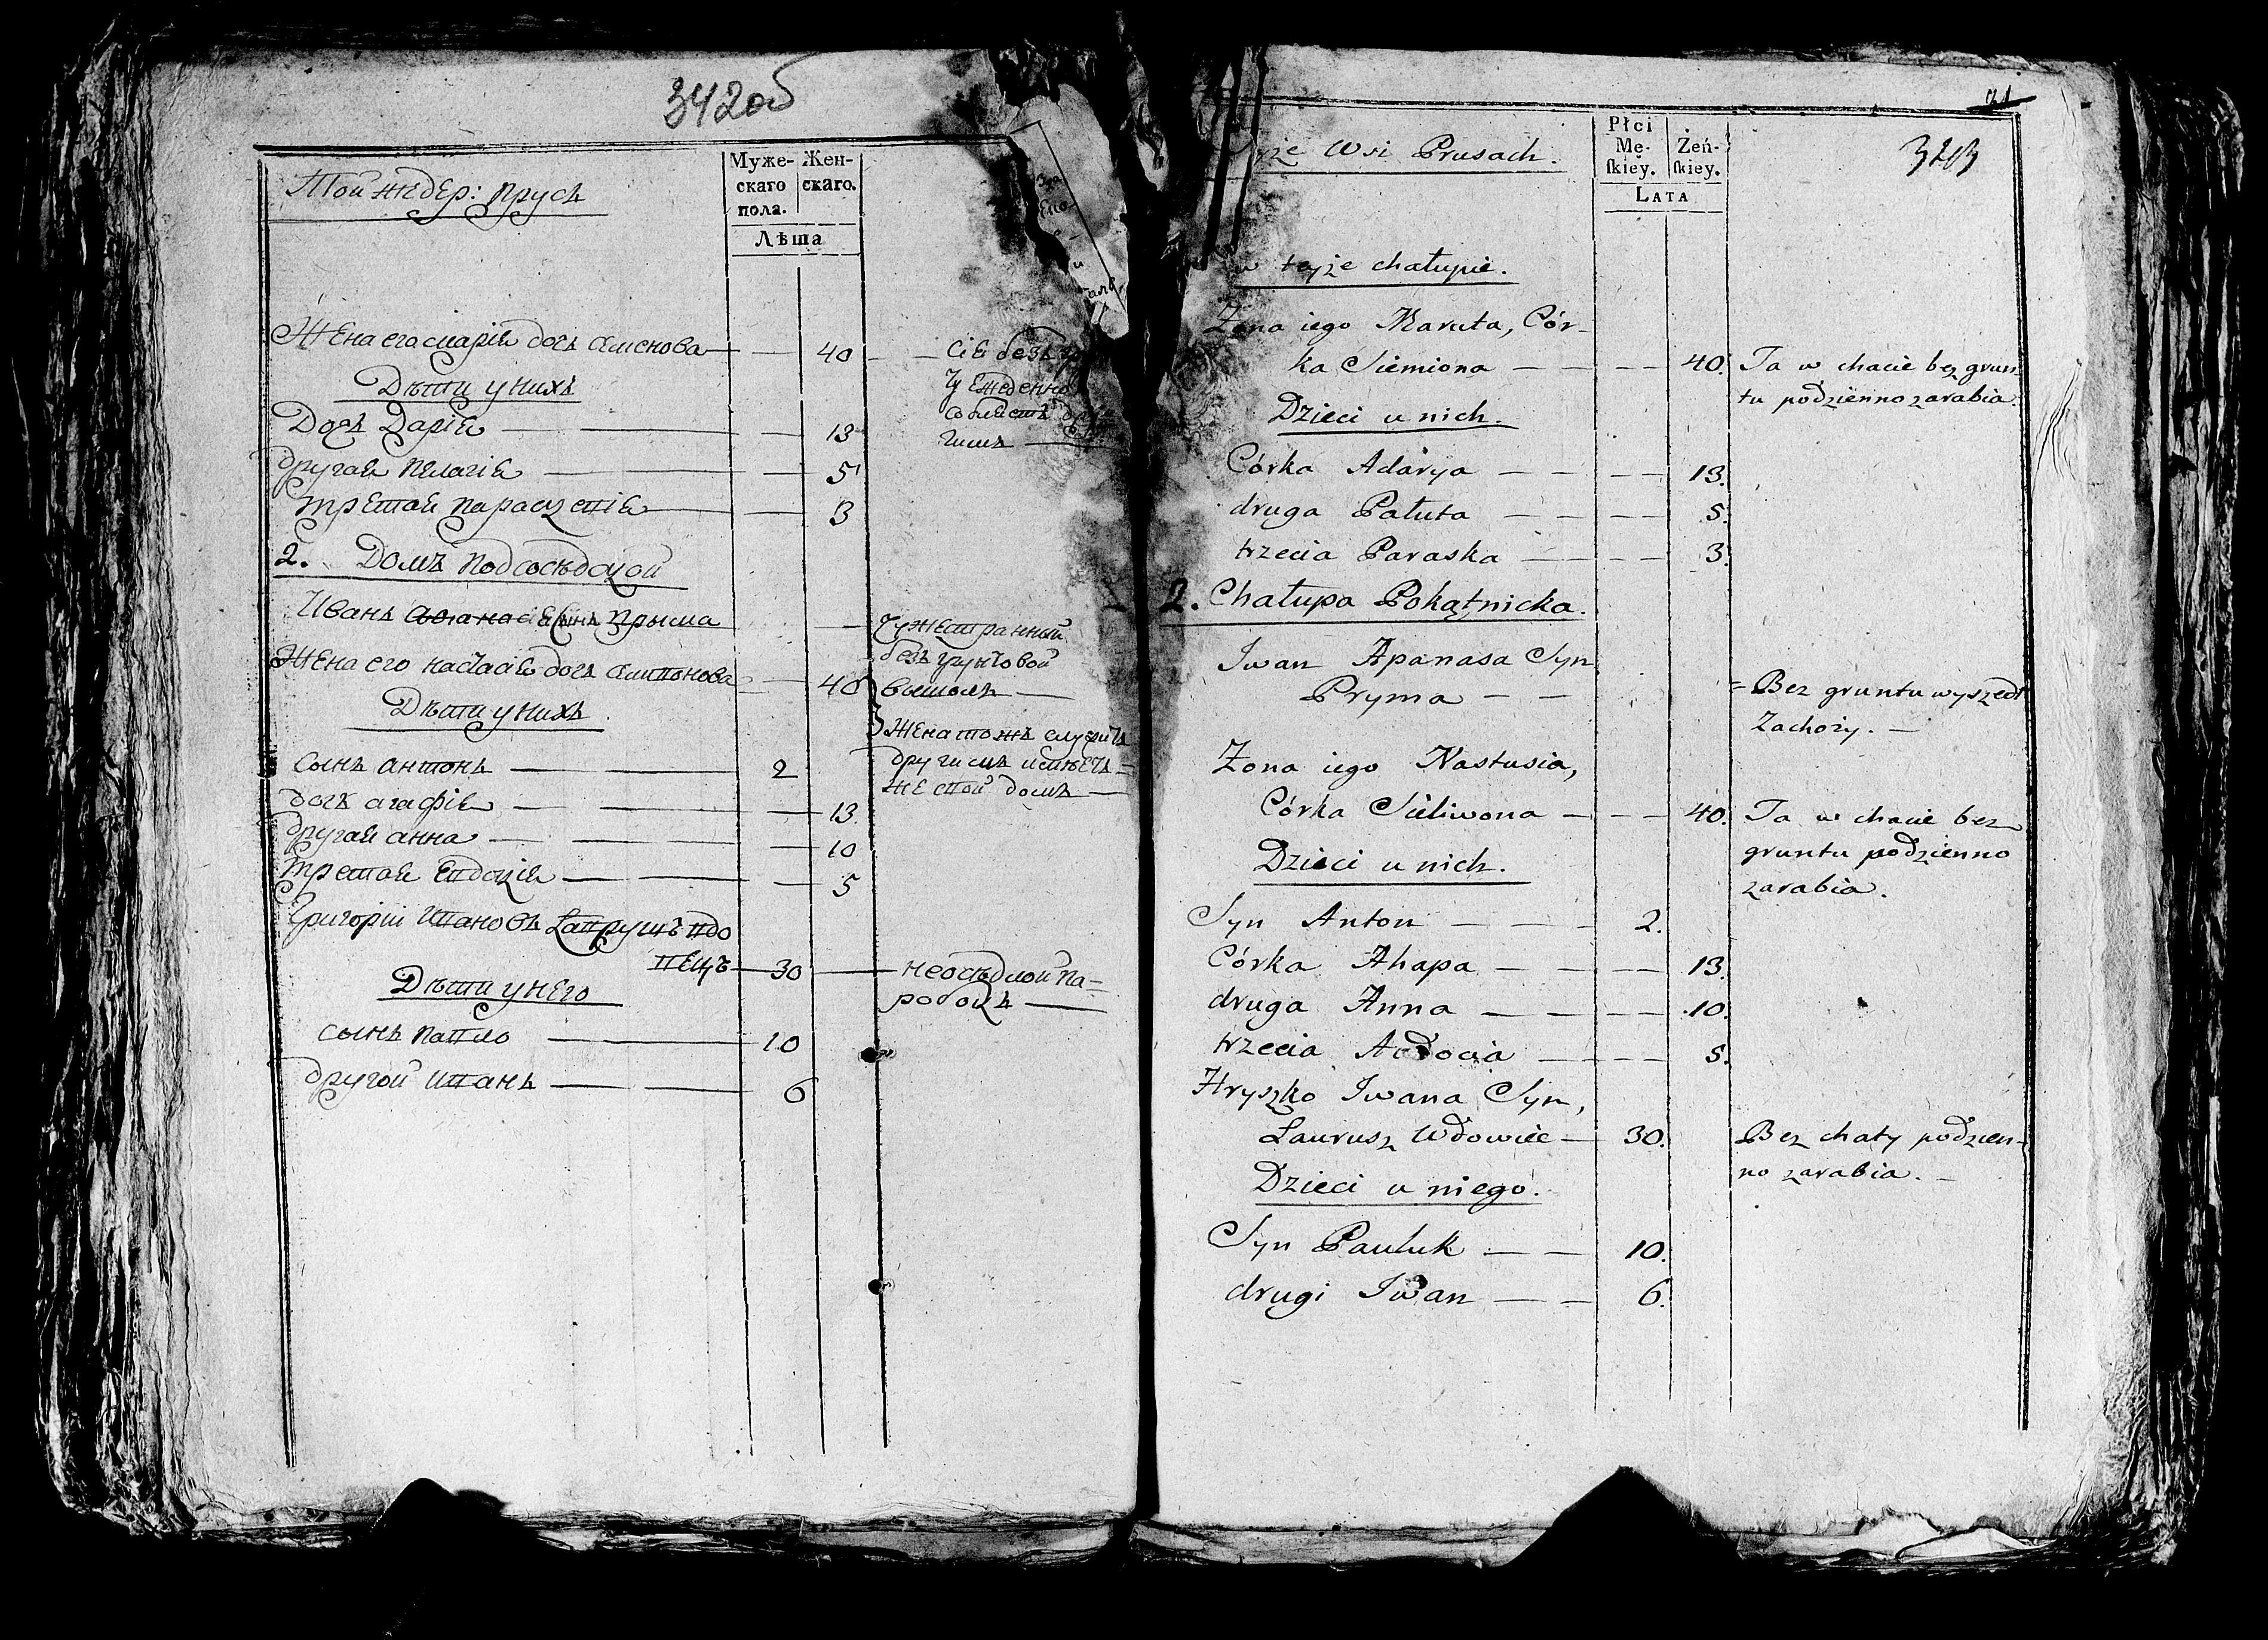 342об
Той же дер: Прусъ
Муже-
скаго
пола.
Жен-
скаго.
Лѣта
Жена его Марія дочь Семенова — — 40
Дѣти у нихъ
Дочь Дарія — — 13
другая Пелагія — — 5
третая Параскевія — — 3
Сія безъ
2. Домъ подсосѣдской
Иванъ Афанасіевъ сынъ Прыма —
Чужестранный
безъгрунтовой
вышолъ —
Жена его Настасія дочь Силивонова — 40
Дѣти у нихъ
Жена тожъ служитъ
другимъ
же той домъ —
Сынъ Антонъ — — 2
дочь Агафія — — 13
другая Анна — — 10
третая Евдокія — — 5
Григорій Ивановъ Лаврушъ вдо
вецъ — 30 —
неосѣдлой па-
робокъ —
Дѣти у него
сынъ Павло — 10
другой Иванъ — — 6
yże Wsi Prusach.
Płci
Mę-
skiey.
Żeń-
skiey.
Lata
71
343
w teyże chałupie.
Zona iego Maruta, Cór-
ka Siemiona — — — 40.
Ta w chacie bez grun
tu podziennozarabia.
Dzieci u nich.
Córka Adarya — — — 13.
druga Pałuta — — — 5.
trzecia Paraska — — — 3.
2. Chałupa Pokątnicka.
Iwan Apanasa Syn
Pryma — —
= Bez gruntu wyszedł
Zachoży. —
Zona iego Nastusia,
Córka Sieliwona — — — 40.
Ta w chacie bez
gruntu podzienno
zarabia.
Dzieci u nich.
Syn Anton — — — 2.
Córka Ahapa — — — 13.
druga Anna — — — 10.
trzecia Audocia — — — 5.
Hryszko Iwana Syn,
Laurusz Wdowiec — 30.
Bez chaty podzien-
no zarabia. —
Dzieci u niego.
Syn Pauluk — — 10.
drugi Iwan — — 6.